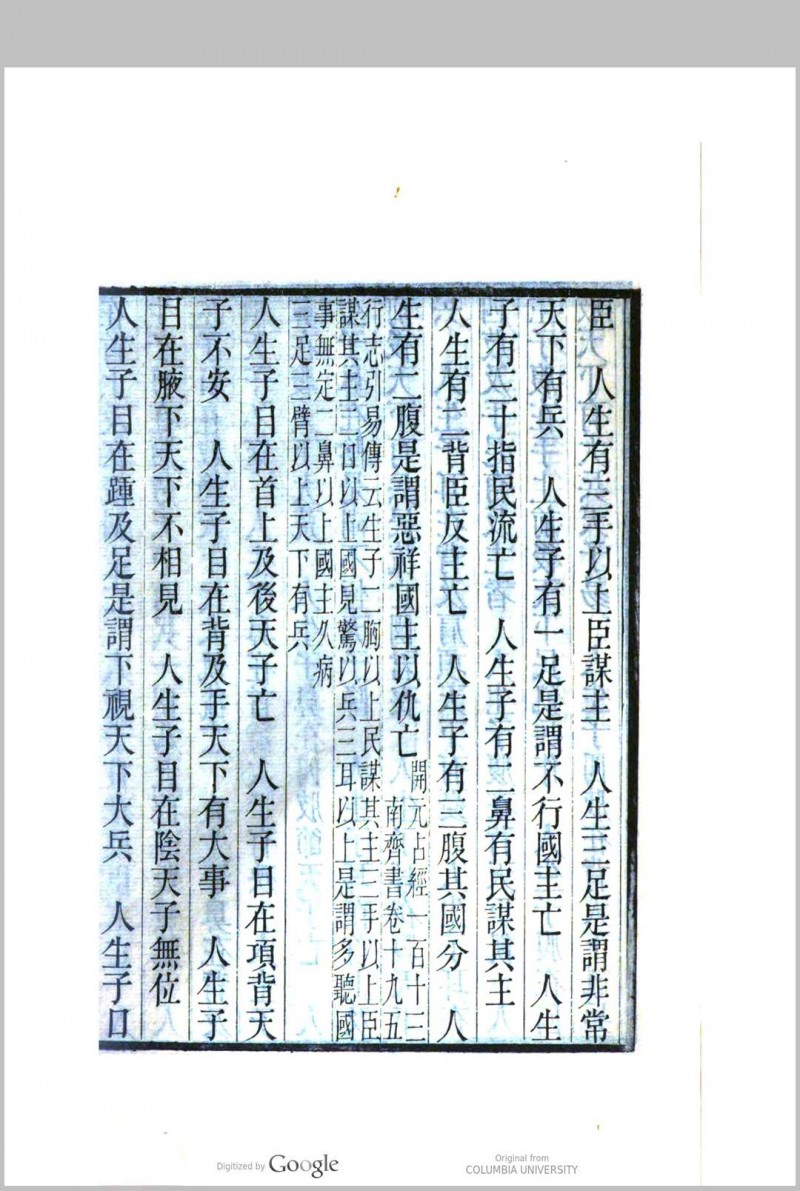 臣　人生有三手以上臣謀主　人生三足是謂非常
天下有兵　人生子有一足是謂不行國主亡　人生
子有三十指民流亡　人生子有二鼻有民謀其主
人生有二背臣反主亡　人生子有三腹其國分　人
生有二腹是謂惡祥國主以仇亡
開元占經一百十三
南齊書卷十九五
行志引易傳云生子二胸以上民謀其主三手以上臣
謀其主二口以上國見驚以兵三耳以上是謂多聽國
事無定二鼻以上國主久病
三足三臂以上天下有兵
人生子目在首上及後天子亡　人生子目在項背天
子不安　人生子目在背及手天下有大事　人生子
目在腋下天下不相見　人生子目在陰天子無位
人生子目在踵及足是謂下視天下大兵　人生子口
Digitized by Google
Original from
COLUMBIA UNIVERSITY